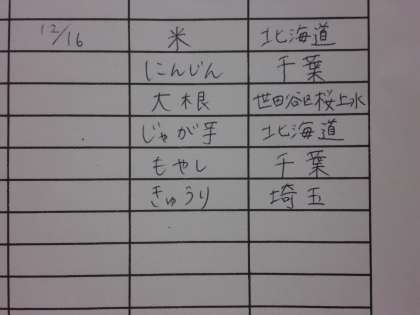 12/16 米 北海道
にんじん 千葉
大根 世田谷区桜上水
じゃが芋 北海道
もやし 千葉
きゅうり 埼玉